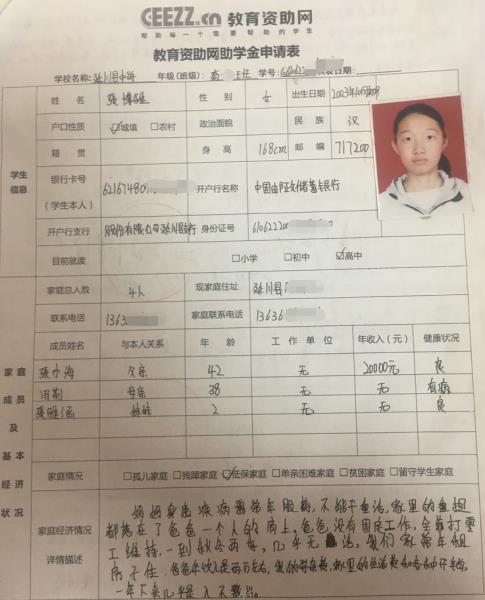 CEEZZ.cn 教育资助网
帮助每一个需要帮助的学生
教育资助网助学金申请表
学校名称: 延川县中学 年级(班级): 高 学号: 日期:
姓 名 性 别 女 出生日期 2003年10月
户口性质 ☑城镇 □农村 政治面貌 民 族 汉
籍 贯 身 高 168cm 邮 编 717200
学生信息
银行卡号(学生本人) 62167480 开户行名称 中国邮政储蓄银行
开户行支行 股份有限公司延川县支行 身份证号 610622200
目前就读 □小学 □初中 ☑高中
家庭总人数 4人 现家庭住址 延川县
联系电话 1363 家庭联系电话 13636
成员姓名 与本人关系 年 龄 工 作 单 位 年收入(元) 健康状况
父亲 42 无 20000元 良
母亲 38 无 无 有病
妹妹 2 无 无 良
家庭成员及基本经济状况
家庭情况 □孤儿家庭 □残障家庭 ☑低保家庭 □单亲困难家庭 □贫困家庭 □留守学生家庭
家庭经济情况详情描述
妈妈身患疾病需常年服药,不能干重活,家里的重担
都落在了爸爸一个人的肩上,爸爸没有固定工作,全靠打零
工维持,一到秋冬两季,几乎无活,我们家常年租
房子住,爸爸年收入是两万左右,我的学杂费,家里的生活费和各种开销,
一年下来几乎是入不敷出。